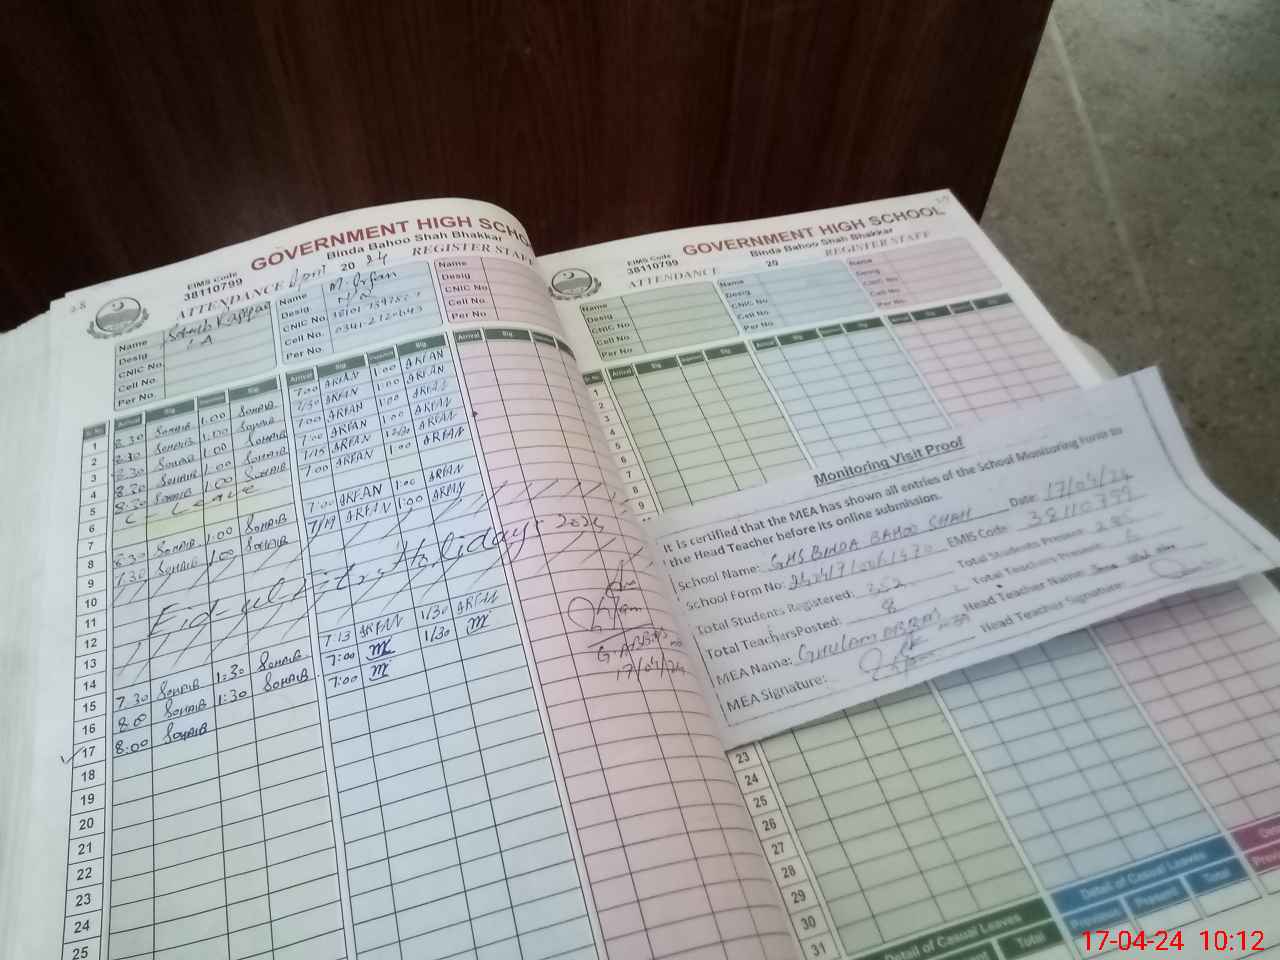 28
GOVERNMENT HIGH SCHO
Binda Bahoo Shah Bhakkar
EIMS Code
38110799
ATTENDANCE April 20 24 REGISTER STAFF
Name
Desig
CNIC No
Cell No.
Per No.
Name M. Irfan
Desig
CNIC No
Cell No.
Per No.
Name
Desig
CNIC No
Cell No
Per No.
Sr. No. Arrival Sig Sig Arrival Sig Departure Sig Arrival Sig
1 8.30 SOHAIB 1.00 SOHAIB 7:00 ARFAN 1:00 ARFAN
2 8.30 SOHAIB 1.00 SOHAIB 7:30 ARFAN 1:00 ARFAN
3 8.30 SOHAIB 1.00 SOHAIB 7:00 ARFAN 1:00 ARFAN
4 8.30 SOHAIB 1.00 SOHAIB 7:00 ARFAN 1:00 ARFAN
5 8.30 SOHAIB 1.00 SOHAIB 7:15 ARFAN ARFAN
6 C - Leave 7:00 ARFAN 1:00 ARFAN
7
8 8.30 SOHAIB 1:00 SOHAIB 7:00 ARFAN 1:00 ARFAN
9 7.30 SOHAIB 1:00 SOHAIB 7/19 ARFAN 1:00 ARFAN
10
11
12
13
14
Eid ul Fitr Holidays 2024
15 7.30 SOHAIB 1:30 SOHAIB 7:13 ARFAN 1/30 ARFAN
16 8.00 SOHAIB 1:30 SOHAIB 7:00 1/30
17 8:00 SOHAIB 7:00
18
19
20
21
22
23
24
25
G. ABBAS
17/04/24
GOVERNMENT HIGH SCHOOL
Binda Bahoo Shah Bhakkar
EIMS Code
38110799
ATTENDANCE 20 REGISTER STAFF
Name
Desig
CNIC No
Cell No.
Per No.
Name
Desig
CNIC No
Cell No.
Per No.
Name
Desig
CNIC No
Cell No
Per No.
1
2
3
4
5
6
7
8
9
Monitoring Visit Proof
It is certified that the MEA has shown all entries of the School Monitoring Form to
the Head Teacher before its online submission.
School Name: GHS BINDA BAHOO SHAH Date: 17/04/24
School Form No: EMIS Code 38110799
Total Students Registered: 352 Total Students Present 285
Total TeachersPosted: 8 Total Teachers Present
MEA Name: GHULAM ABBAS Head Teacher Name:
MEA Signature: Head Teacher Signature:
23
24
25
26
27
28
29
30
31
Detail of Casual Leaves
Present Total
Detail of Casual Leaves
Previous Present Total
17-04-24 10:12